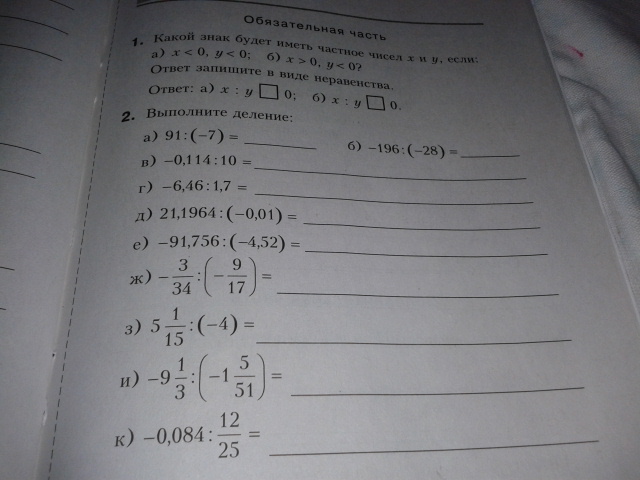 Обязательная часть
1. Какой знак будет иметь частное чисел x и y, если:
а) x < 0, y < 0; б) x > 0, y < 0?
Ответ запишите в виде неравенства.
Ответ: а) x : y □ 0; б) x : y □ 0.
2. Выполните деление:
а) 91 : (−7) = ________ б) −196 : (−28) = ________
в) −0,114 : 10 = ________
г) −6,46 : 1,7 = ________
д) 21,1964 : (−0,01) = ________
е) −91,756 : (−4,52) = ________
ж) −3/34 : (−9/17) = ________
з) 5 1/15 : (−4) = ________
и) −9 1/3 : (−1 5/51) = ________
к) −0,084 : 12/25 = ________